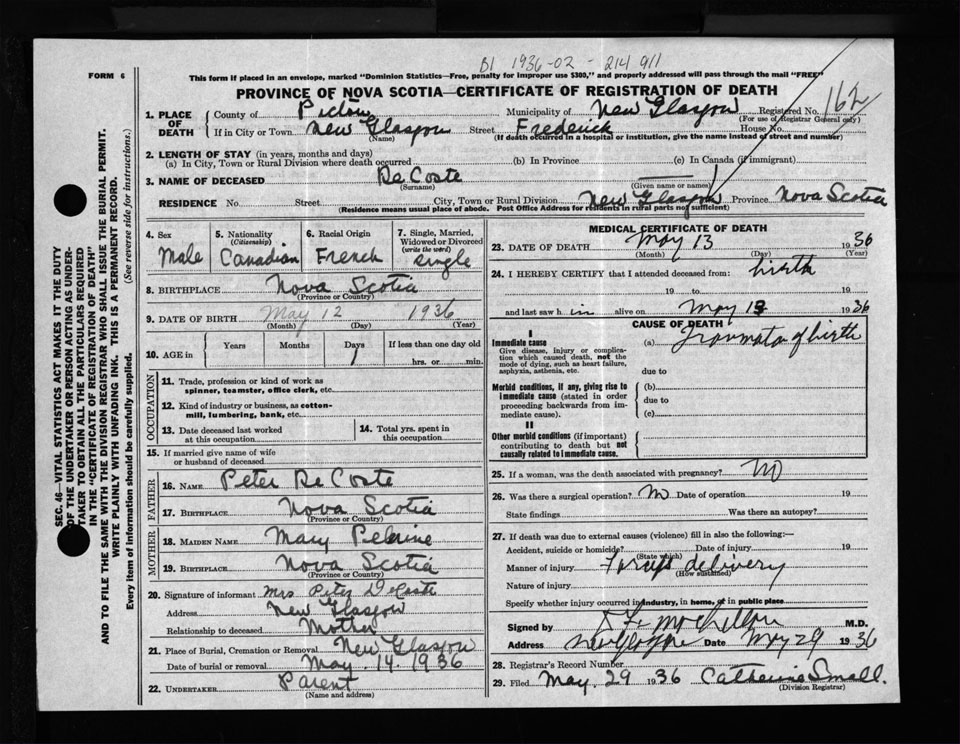 B1 1936-02 - 214 911
FORM 6
This form if placed in an envelope, marked "Dominion Statistics—Free, penalty for improper use $300," and properly addressed will pass through the mail "FREE"
PROVINCE OF NOVA SCOTIA—CERTIFICATE OF REGISTRATION OF DEATH
1. PLACE OF DEATH
County of Pictou Municipality of New Glasgow Registered No. 162
(For use of Registrar General only)
If in City or Town New Glasgow Street Frederick House No.
(Name) (If death occurred in a hospital or institution, give the name instead of street and number)
2. LENGTH OF STAY (in years, months and days)
(a) In City, Town or Rural Division where death occurred (b) In Province (c) In Canada (if immigrant)
3. NAME OF DECEASED De Coste
(Surname) (Given name or names)
RESIDENCE No. Street City, Town or Rural Division New Glasgow Province Nova Scotia
(Residence means usual place of abode. Post Office Address for residents in rural parts not sufficient)
4. Sex
Male
5. Nationality
(Citizenship)
Canadian
6. Racial Origin
French
7. Single, Married, Widowed or Divorced
(write the word)
single
8. BIRTHPLACE Nova Scotia
(Province or Country)
9. DATE OF BIRTH May 12 1936
(Month) (Day) (Year)
10. AGE in
Years Months Days If less than one day old
1 hrs. or min.
OCCUPATION
11. Trade, profession or kind of work as
spinner, teamster, office clerk, etc.
12. Kind of industry or business, as cotton-
mill, lumbering, bank, etc.
13. Date deceased last worked
at this occupation
14. Total yrs. spent in
this occupation
15. If married give name of wife
or husband of deceased
FATHER
16. NAME Peter De Coste
17. BIRTHPLACE Nova Scotia
(Province or Country)
MOTHER
18. MAIDEN NAME Mary Pelrine
19. BIRTHPLACE Nova Scotia
(Province or Country)
20. Signature of informant Mrs Peter DeCoste
Address New Glasgow
Relationship to deceased Mother
21. Place of Burial, Cremation or Removal New Glasgow
Date of burial or removal May. 14. 1936
22. UNDERTAKER Parent
(Name and address)
MEDICAL CERTIFICATE OF DEATH
23. DATE OF DEATH May 13 1936
(Month) (Day) (Year)
24. I HEREBY CERTIFY that I attended deceased from: birth
19 to 19
and last saw h im alive on May 13 1936
CAUSE OF DEATH
I
Immediate cause
Give disease, injury or complica-
tion which caused death, not the
mode of dying, such as heart failure,
asphyxia, asthenia, etc.
(a) of birth
due to
Morbid conditions, if any, giving rise to
immediate cause (stated in order
proceeding backwards from im-
mediate cause).
(b)
due to
(c)
II
Other morbid conditions (if important)
contributing to death but not
causally related to immediate cause.
25. If a woman, was the death associated with pregnancy? No
26. Was there a surgical operation? No Date of operation 19
State findings Was there an autopsy?
27. If death was due to external causes (violence) fill in also the following:—
Accident, suicide or homicide? Date of injury 19
(State which)
Manner of injury delivery
(How sustained)
Nature of injury
Specify whether injury occurred in industry, in home, or in public place
Signed by M.D.
Address New Glasgow Date May 29 1936
28. Registrar's Record Number
29. Filed May. 29 1936 Catherine Small.
(Division Registrar)
SEC. 46—VITAL STATISTICS ACT MAKES IT THE DUTY
OF THE UNDERTAKER OR PERSON ACTING AS UNDER-
TAKER TO OBTAIN ALL THE PARTICULARS REQUIRED
IN THE "CERTIFICATE OF REGISTRATION OF DEATH"
AND TO FILE THE SAME WITH THE DIVISION REGISTRAR WHO SHALL ISSUE THE BURIAL PERMIT.
WRITE PLAINLY WITH UNFADING INK. THIS IS A PERMANENT RECORD.
Every item of information should be carefully supplied. (See reverse side for instructions.)